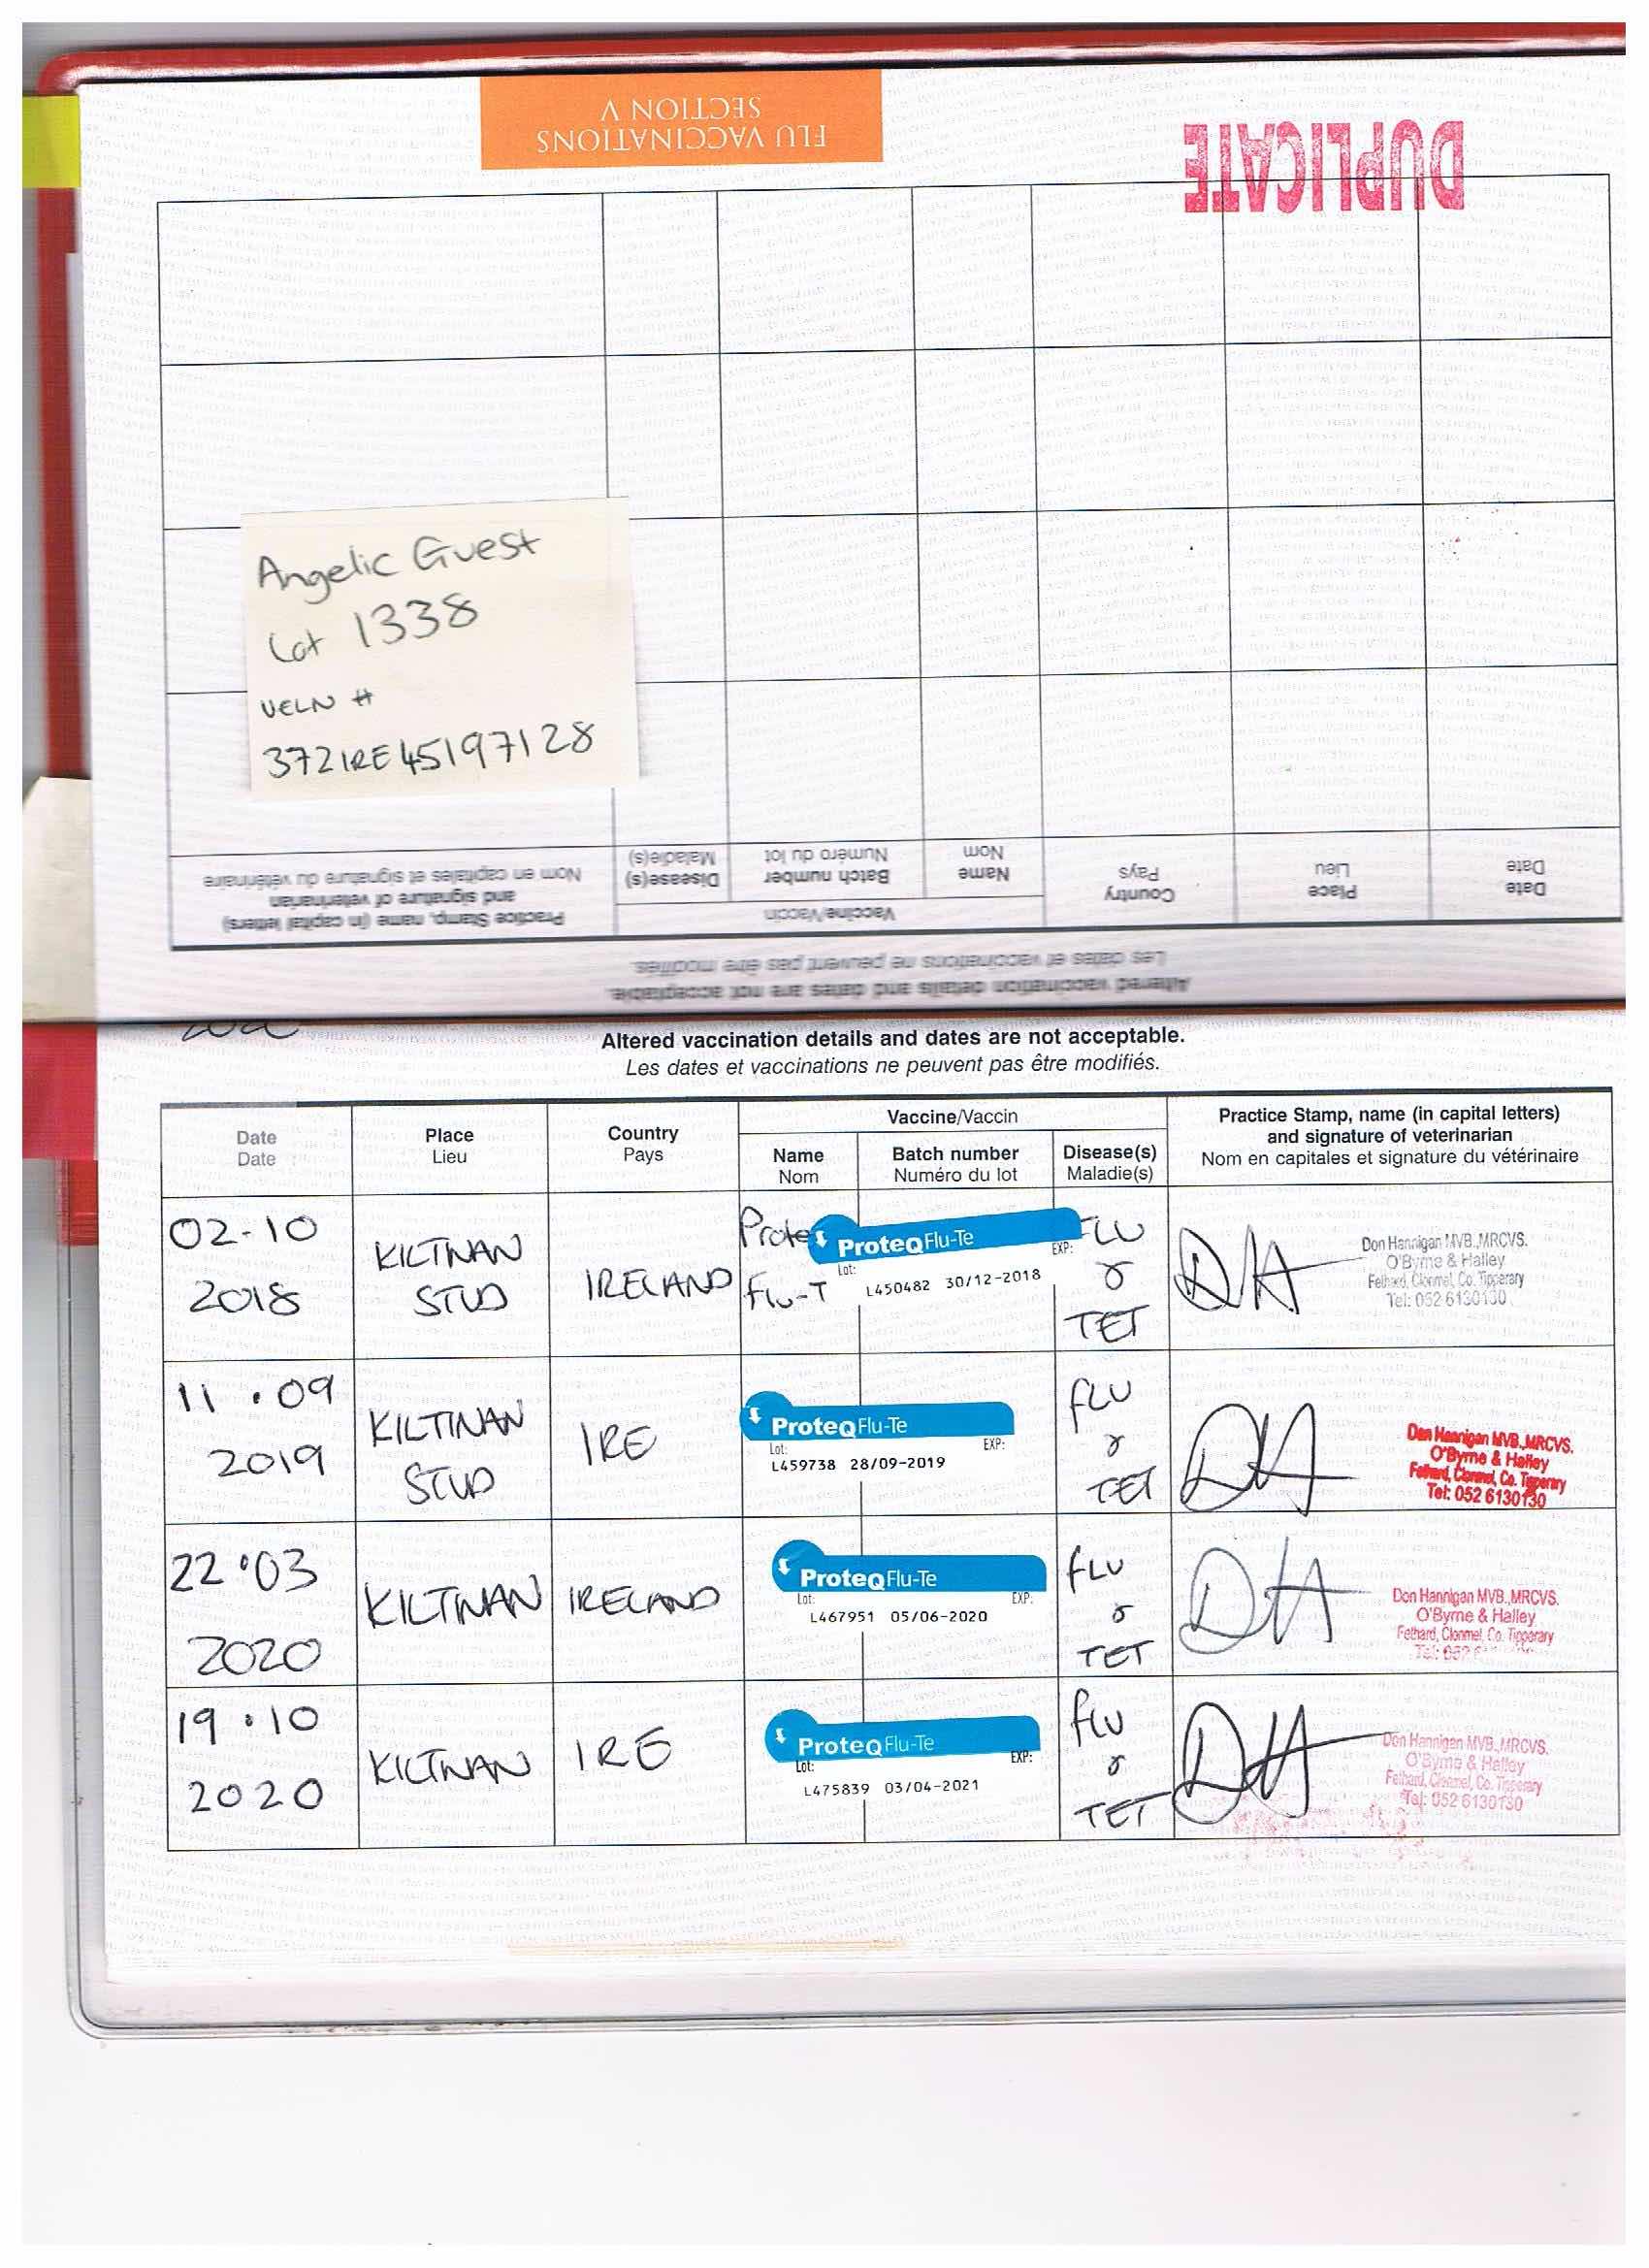 FLU VACCINATIONS
SECTION V
DUPLICATE
Angelic Guest
Lot 1338
UELN #
372IRE45197128
Altered vaccination details and dates are not acceptable.
Les dates et vaccinations ne peuvent pas être modifiés.
Date
Date
Place
Lieu
Country
Pays
Vaccine/Vaccin
Name
Nom
Batch number
Numéro du lot
Disease(s)
Maladie(s)
Practice Stamp, name (in capital letters)
and signature of veterinarian
Nom en capitales et signature du vétérinaire
Altered vaccination details and dates are not acceptable.
Les dates et vaccinations ne peuvent pas être modifiés.
Date
Date
Place
Lieu
Country
Pays
Vaccine/Vaccin
Name
Nom
Batch number
Numéro du lot
Disease(s)
Maladie(s)
Practice Stamp, name (in capital letters)
and signature of veterinarian
Nom en capitales et signature du vétérinaire
02-10
2018
KILTINAN
STUD
IRELAND
Flu-T
ProteqFlu-Te
Lot:
EXP:
L450482 30/12-2018
FLU
&
TET
DH
Don Hannigan MVB.,MRCVS.
O'Byrne & Halley
Fethard, Clonmel, Co. Tipperary
Tel: 052 6130130
11.09
2019
KILTINAN
STUD
IRE
ProteqFlu-Te
Lot:
EXP:
L459738 28/09-2019
FLU
&
TET
DH
Don Hannigan MVB.,MRCVS.
O'Byrne & Halley
Fethard, Clonmel, Co. Tipperary
Tel: 052 6130130
22.03
2020
KILTINAN
IRELAND
ProteqFlu-Te
Lot:
EXP:
L467951 05/06-2020
FLU
&
TET
DH
Don Hannigan MVB.,MRCVS.
O'Byrne & Halley
Fethard, Clonmel, Co. Tipperary
Tel: 052
19.10
2020
KILTINAN
IRE
ProteqFlu-Te
Lot:
EXP:
L475839 03/04-2021
flu
&
TET
DH
Don Hannigan MVB.,MRCVS.
O'Byrne & Halley
Fethard, Clonmel, Co. Tipperary
Tel: 052 6130130